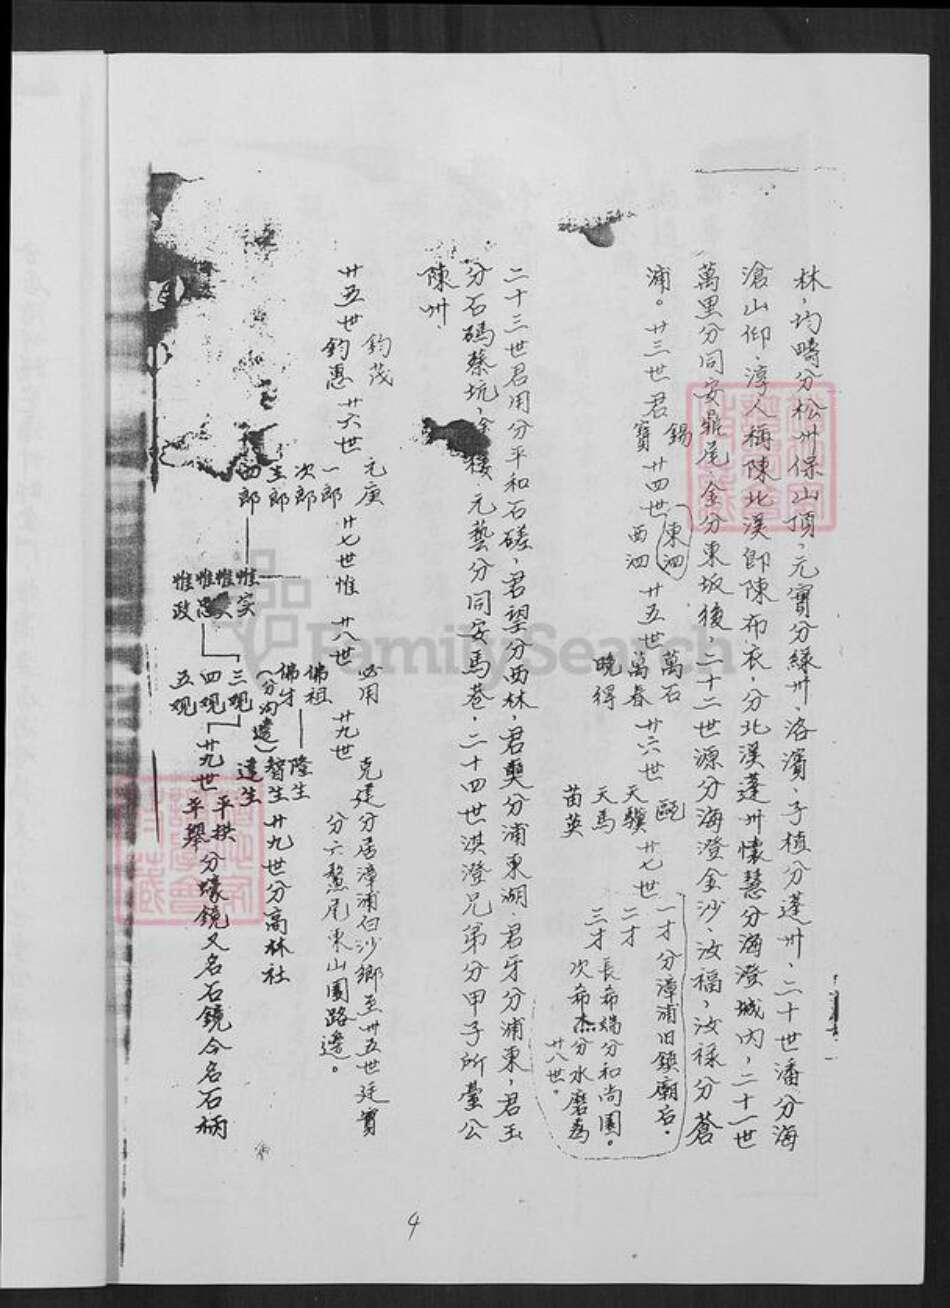 林,均疇分松州保山頂,元寶分綠州,洛濱,子植分蓬州,二十世潘分海
滄山仰,淳人稱陳北溪即陳布衣,分北溪蓬州懷慧分海澄城內,二十一世
萬里分同安鼎尾,金分東坂後,二十二世源分海澄金沙,汝福,汝祿分蒼
浦。廿三世君
錫
寶
廿四世
東泗
西泗
廿五世
萬石
萬春
曉得
廿六世
天驥
天馬
苗英
廿七世
一才分漳浦旧鎮廟后.
二才
三才
長希端分和尚園。
次希杰分水磨為
廿八世。
二十三世君用分平和石磋,君望分西林,君奭分浦東湖,君牙分浦東,君玉
分石碼蔡坑,元藝分同安馬巷,二十四世淇澄兄弟分甲子所臺公
陳州
廿五世
鈞茂
鈞惠
廿六世
元庚
一郎
次郎
三郎
四郎
廿七世惟
惟实
惟忠
惟政
廿八世
必用
佛祖
佛才
(分沟邊)
三观
四观
五观
廿九世
克建分居漳浦白沙鄉至卅五世廷實
分六鰲尾東山園路邊。
隆生
智生
達生
廿九世分高林社
廿九世
平拱
平舉
分壕鏡又名石鏡今名石柄
4
FamilySearch